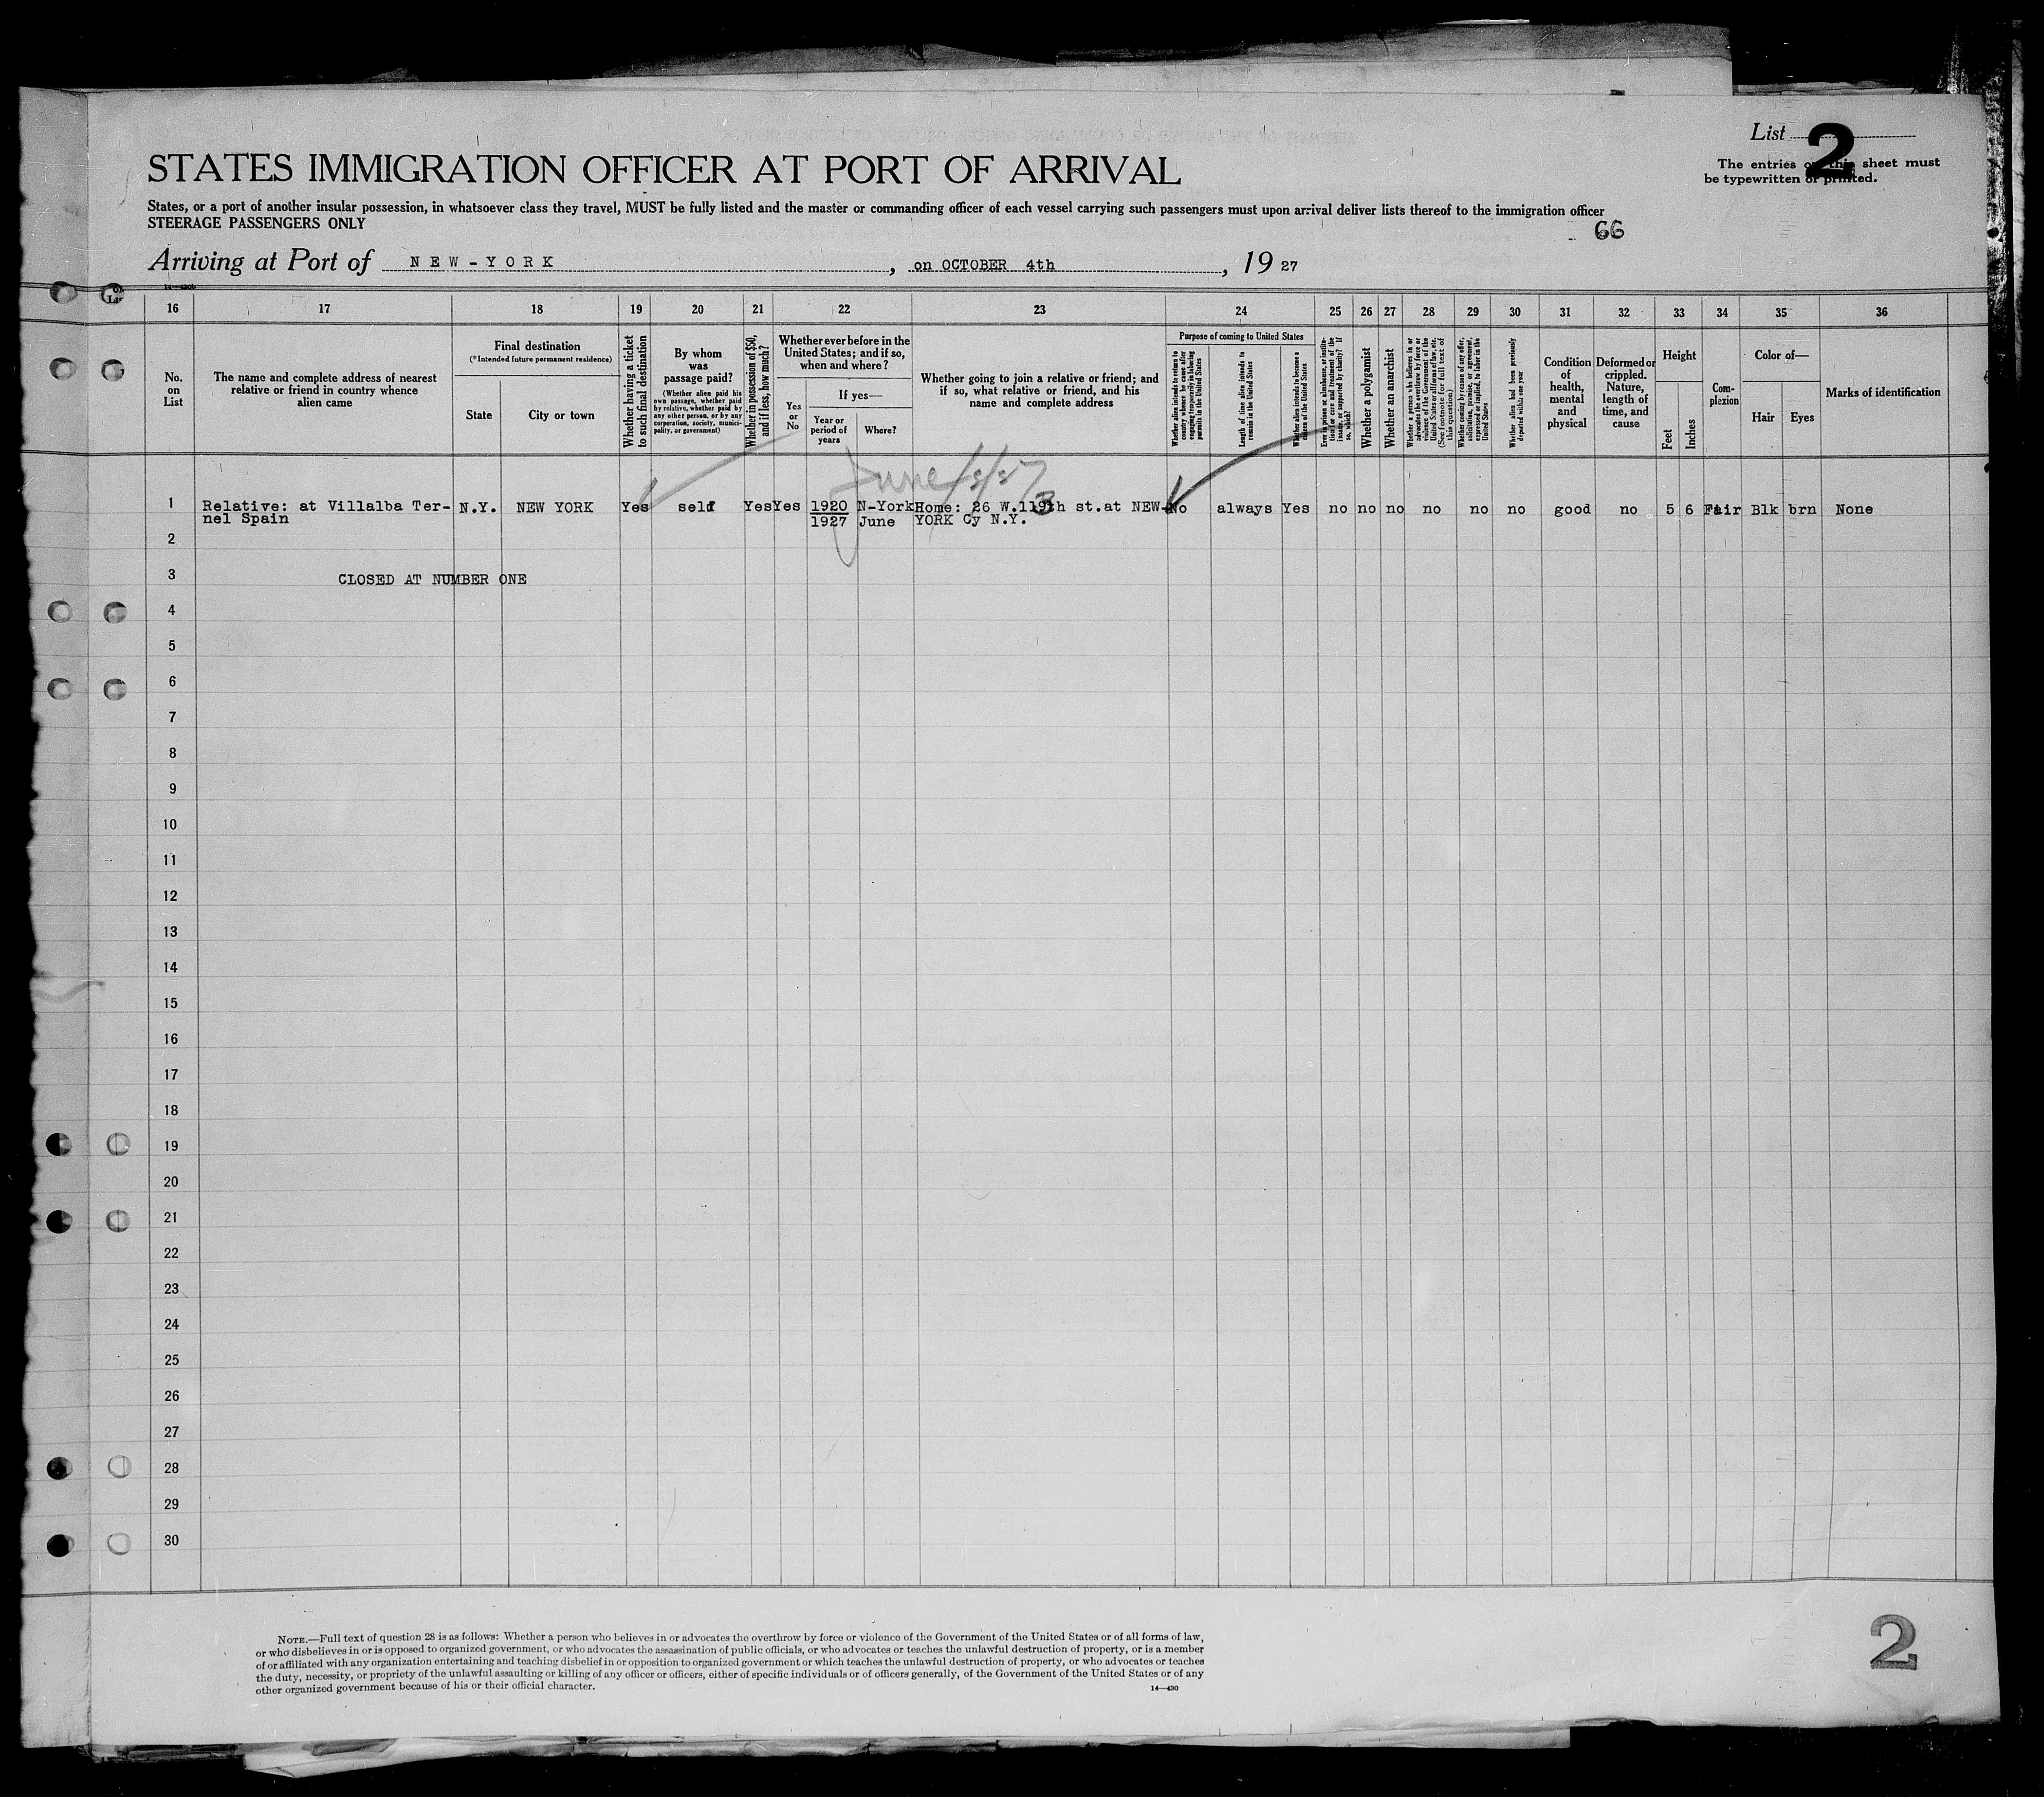 List 2
The entries on this sheet must
be typewritten or printed.
STATES IMMIGRATION OFFICER AT PORT OF ARRIVAL
States, or a port of another insular possession, in whatsoever class they travel, MUST be fully listed and the master or commanding officer of each vessel carrying such passengers must upon arrival deliver lists thereof to the immigration officer
STEERAGE PASSENGERS ONLY
66
Arriving at Port of NEW-YORK, on OCTOBER 4th, 19 27
16 17 18 19 20 21 22 23 24 25 26 27 28 29 30 31 32 33 34 35 36
No.
on
List
The name and complete address of nearest
relative or friend in country whence
alien came
Final destination
(*Intended future permanent residence)
State
City or town
Whether having a ticket
to such final destination
By whom
was
passage paid?
(Whether alien paid his
own passage, whether paid
by relative, whether paid by
any other person, or by any
corporation, society, munici-
pality, or government)
Whether in possession of $50,
and if less, how much?
Whether ever before in the
United States; and if so,
when and where?
Yes
or
No
If yes—
Year or
period of
years
Where?
Whether going to join a relative or friend; and
if so, what relative or friend, and his
name and complete address
Purpose of coming to United States
Whether alien intends to return to
country whence he came after
engaging temporarily in laboring
pursuits in the United States
Length of time alien intends to
remain in the United States
Whether alien intends to become a
citizen of the United States
Ever in prison or almshouse, or institu-
tion for care and treatment of the
insane, or supported by charity? If
so, which?
Whether a polygamist
Whether an anarchist
Whether a person who believes in or
advocates the overthrow by force or
violence of the Government of the
United States or all forms of law, etc.
(See footnote for full text of
this question.)
Whether coming by reason of any offer,
solicitation, promise, or agreement,
expressed or implied, to labor in the
United States
Whether alien had been previously
deported within one year
Condition
of
health,
mental
and
physical
Deformed or
crippled.
Nature,
length of
time, and
cause
Height
Feet
Inches
Com-
plexion
Color of—
Hair
Eyes
Marks of identification
1 Relative: at Villalba Ter- N.Y. NEW YORK Yes self Yes Yes 1920 N-York Home: 26 W.119th st.at NEW- No always Yes no no no no no no good no 5 6 Fair Blk brn None
nel Spain 1927 June YORK Cy N.Y.
2
3 CLOSED AT NUMBER ONE
4
5
6
7
8
9
10
11
12
13
14
15
16
17
18
19
20
21
22
23
24
25
26
27
28
29
30
NOTE.—Full text of question 28 is as follows: Whether a person who believes in or advocates the overthrow by force or violence of the Government of the United States or of all forms of law,
or who disbelieves in or is opposed to organized government, or who advocates the assassination of public officials, or who advocates or teaches the unlawful destruction of property, or is a member
of or affiliated with any organization entertaining and teaching disbelief in or opposition to organized government or which teaches the unlawful destruction of property, or who advocates or teaches
the duty, necessity, or propriety of the unlawful assaulting or killing of any officer or officers, either of specific individuals or of officers generally, of the Government of the United States or of any
other organized government because of his or their official character.
14—430
2